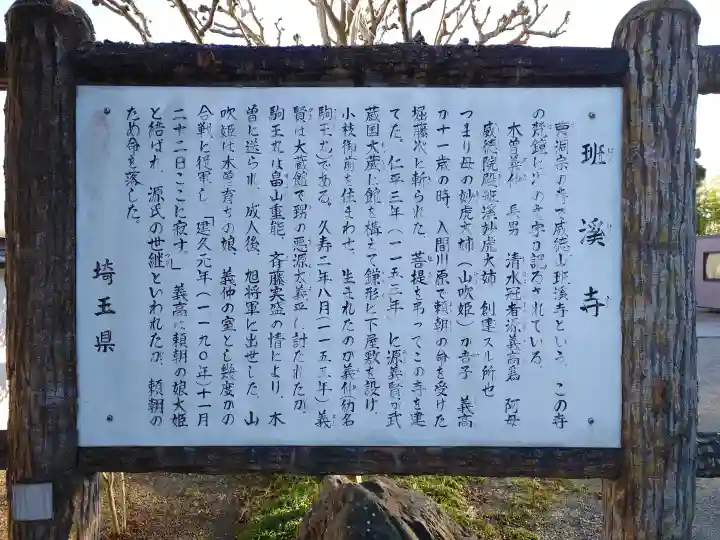 班溪寺
曹洞宗の寺で威徳山班渓寺という。この寺
の梵鐘に次の文字が記るされている。
木曽義仲 長男 清水冠者源義高為 阿母
威徳院殿班渓妙虎大姉 創建スル所也
つまり母の妙虎大姉(山吹姫)が吾子 義高
が十一歳の時、入間川原で頼朝の命を受けた
堀藤次に斬られた、菩提を弔ってこの寺を建
てた。仁平三年(一一五三年)に源義賢が武
蔵国大蔵に館を構えて鎌形に下屋敷を設け
小枝御前を住まわせ、生まれたのが義仲(幼名
駒王丸)である。久寿二年八月(一一五五年)義
賢は大蔵館で甥の悪源太義平に討たれたが、
駒王丸は畠山重能、斉藤実盛の情により、木
曽に送られ、成人後、旭将軍に出世した。山
吹姫は木曽育ちの娘、義仲の室とし幾度かの
合戦に従軍し、「建久元年(一一九〇年)十一月
二十二日ここに寂す。」義高は頼朝の娘大姫
と結ばれ、源氏の世継といわれたが、頼朝の
ため命を落した。
埼玉県